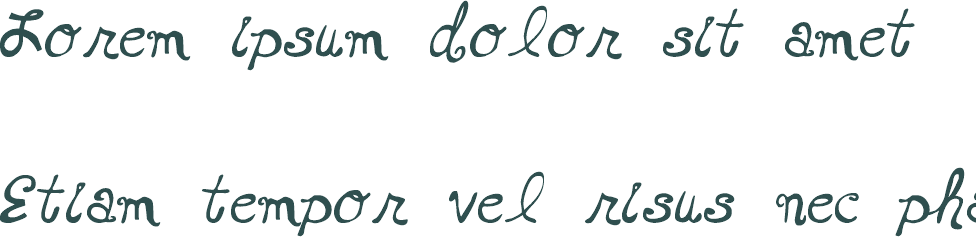 Lorem ipsum dolor sit amet
Etiam tempor vel risus nec pha